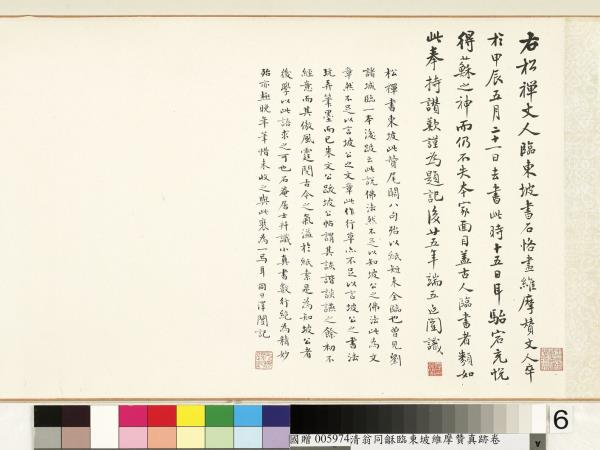 右松禪丈人臨東坡書石恪畫維摩贊丈人卒
於甲辰五月二十一日去書此時十五日耳駘宕充悅
得蘇之神而仍不失本家面目蓋古人臨書者類如
此奉持讚歎謹為題記後廿五年端五 識
松禪書東坡此贊尾闕八句殆以紙短未全臨也曾見劉
諸城臨一本淺跋云此說佛法然不足以知坡公之佛法此為文
章然不足以言坡公之文章此作行草亦不足以言坡公之書法
玩弄筆墨而已朱文公跋坡公帖謂其詼諧談謔之餘初不
經意而其傲風霆閱古今之氣溢於紙素是為知坡公者
後學以此語求之可也石庵居士幷識小真書數行絕為精妙
殆亦極晚年筆惜未收之與此裝為一耳 同日澤闓記
國贈 005974清翁同龢臨東坡維摩贊真跡卷
6
A